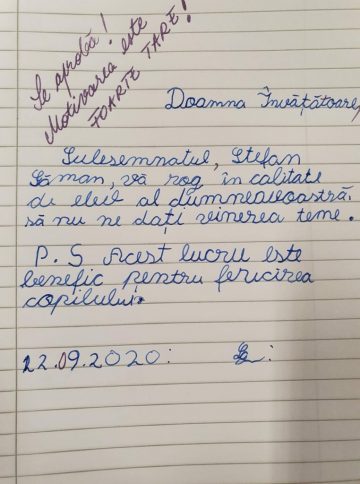 Se aprobă!
Motivarea este
FOARTE TARE!
Doamna Învățătoare,
Subsemnatul, Ștefan
Șăman, vă rog în calitate
de elev al dumneavoastră
să nu ne dați vinerea teme.
P. S Acest lucru este
benefic pentru fericirea
copilului.
22.09.2020: